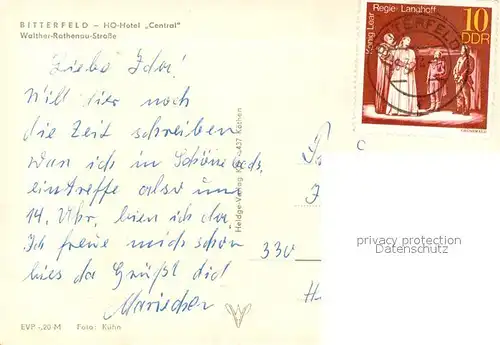 BITTERFELD — HO-Hotel „Central"
Walther-Rathenau-Straße
Liebe Ida!
Will dir noch
die Zeit schreiben
wan ich in Schönebeck
eintreffe also um
14. Uhr, bien ich da
Ich freue mich schon
bies da Grüßt did
EVP -,20 M Foto: Kühn
Heldge-Verlag, Köthen
330
König Lear Regie: Langhoff
10
DDR
BITTERFELD
C
privacy protection
Datenschutz